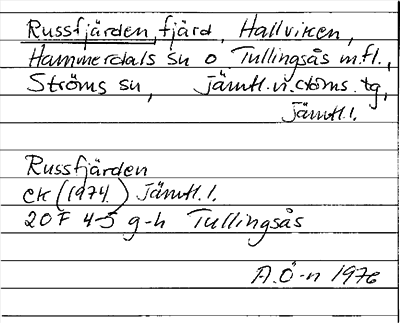 Russfjärden, fjärd, Hallviken,
Hammerdals sn o Tullingsås m.fl.,
Ströms sn, Jämtl. v. doms. tg,
Jämtl. l.
Russfjärden
CK (1974) Jämtl. l.
20 F 4-5 g-h Tullingsås
A.Ö-n 1976